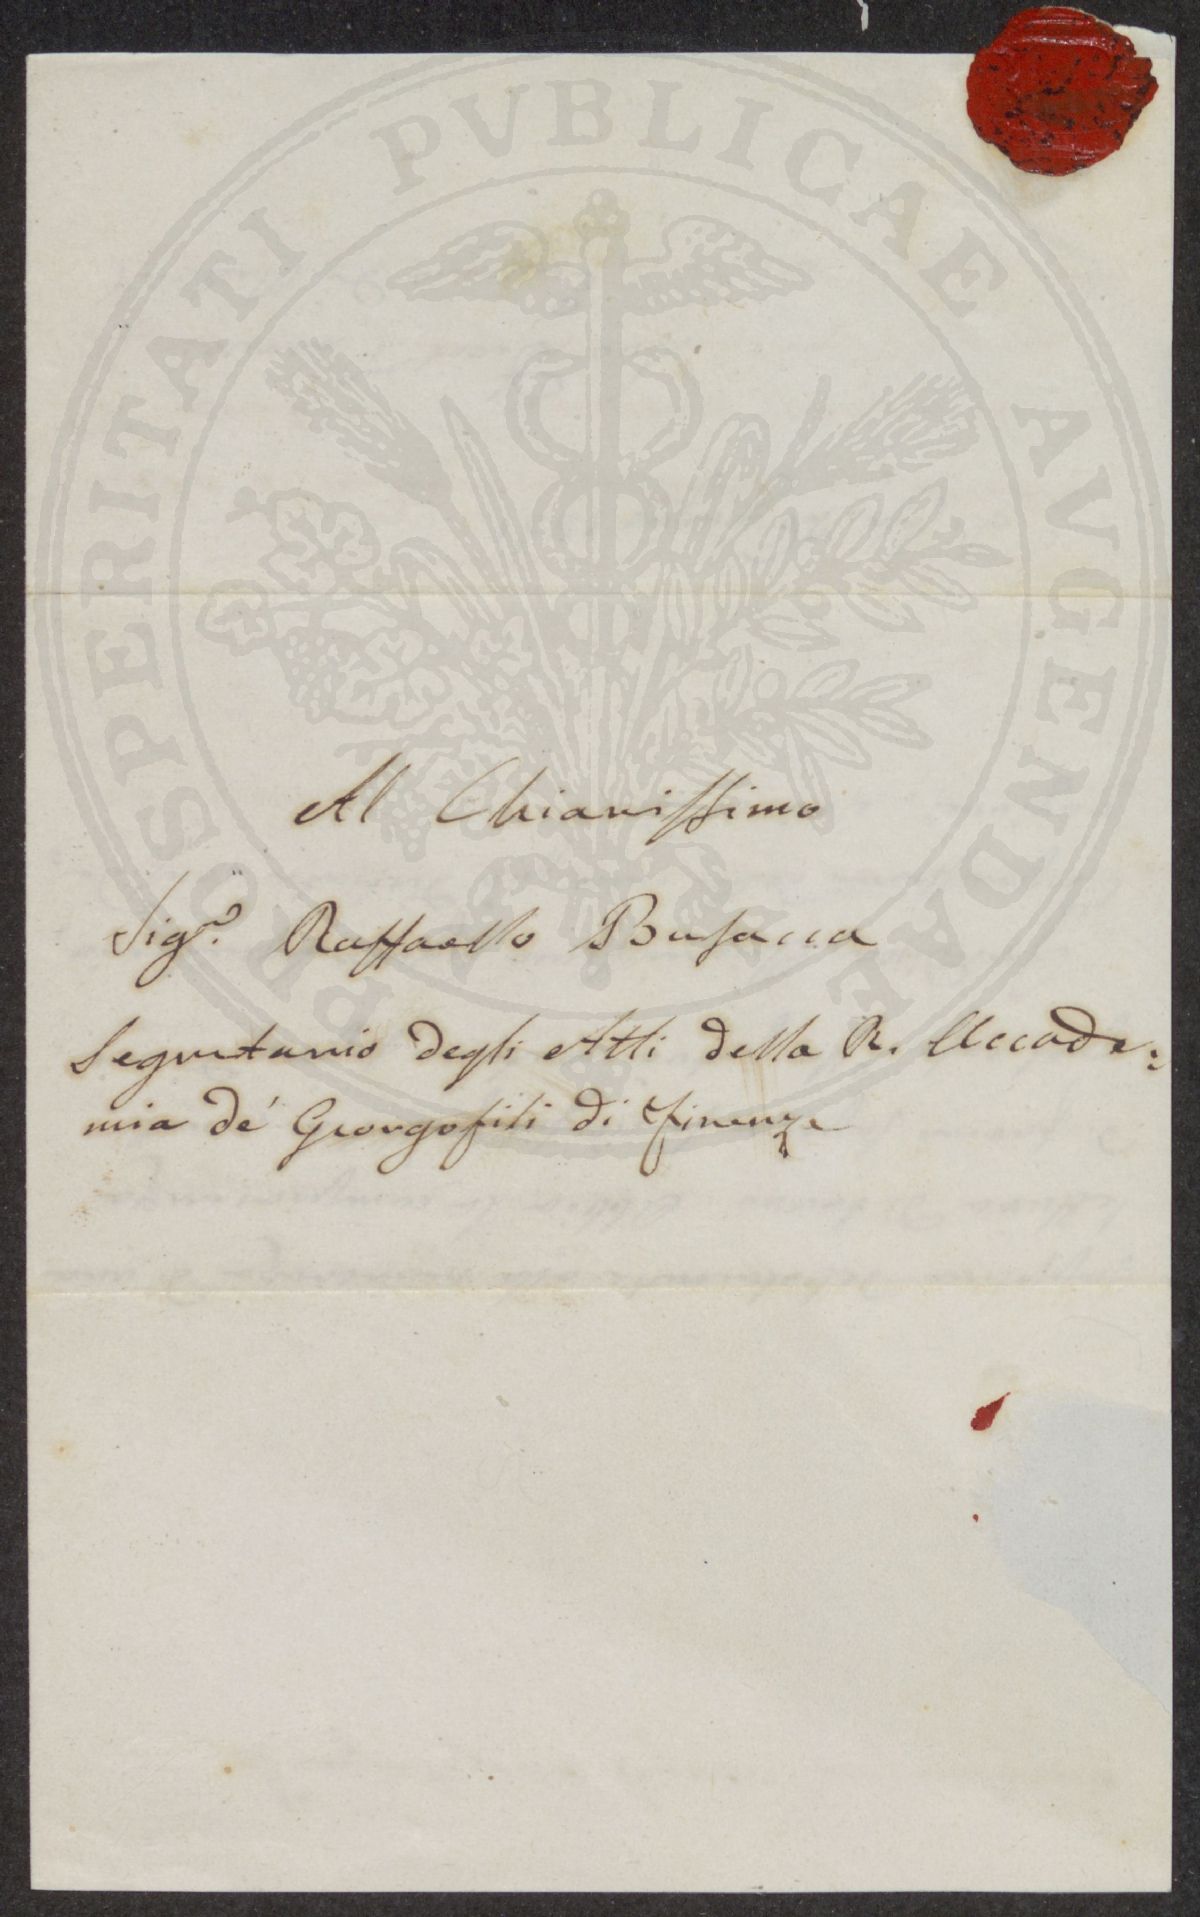 PROSPERITATI PVBLICAE AVGENDAE
Al Chiarissimo
Sig.r Raffaello Busacca
Segretario degli Atti della R. Accade:
mia de' Georgofili di Firenze